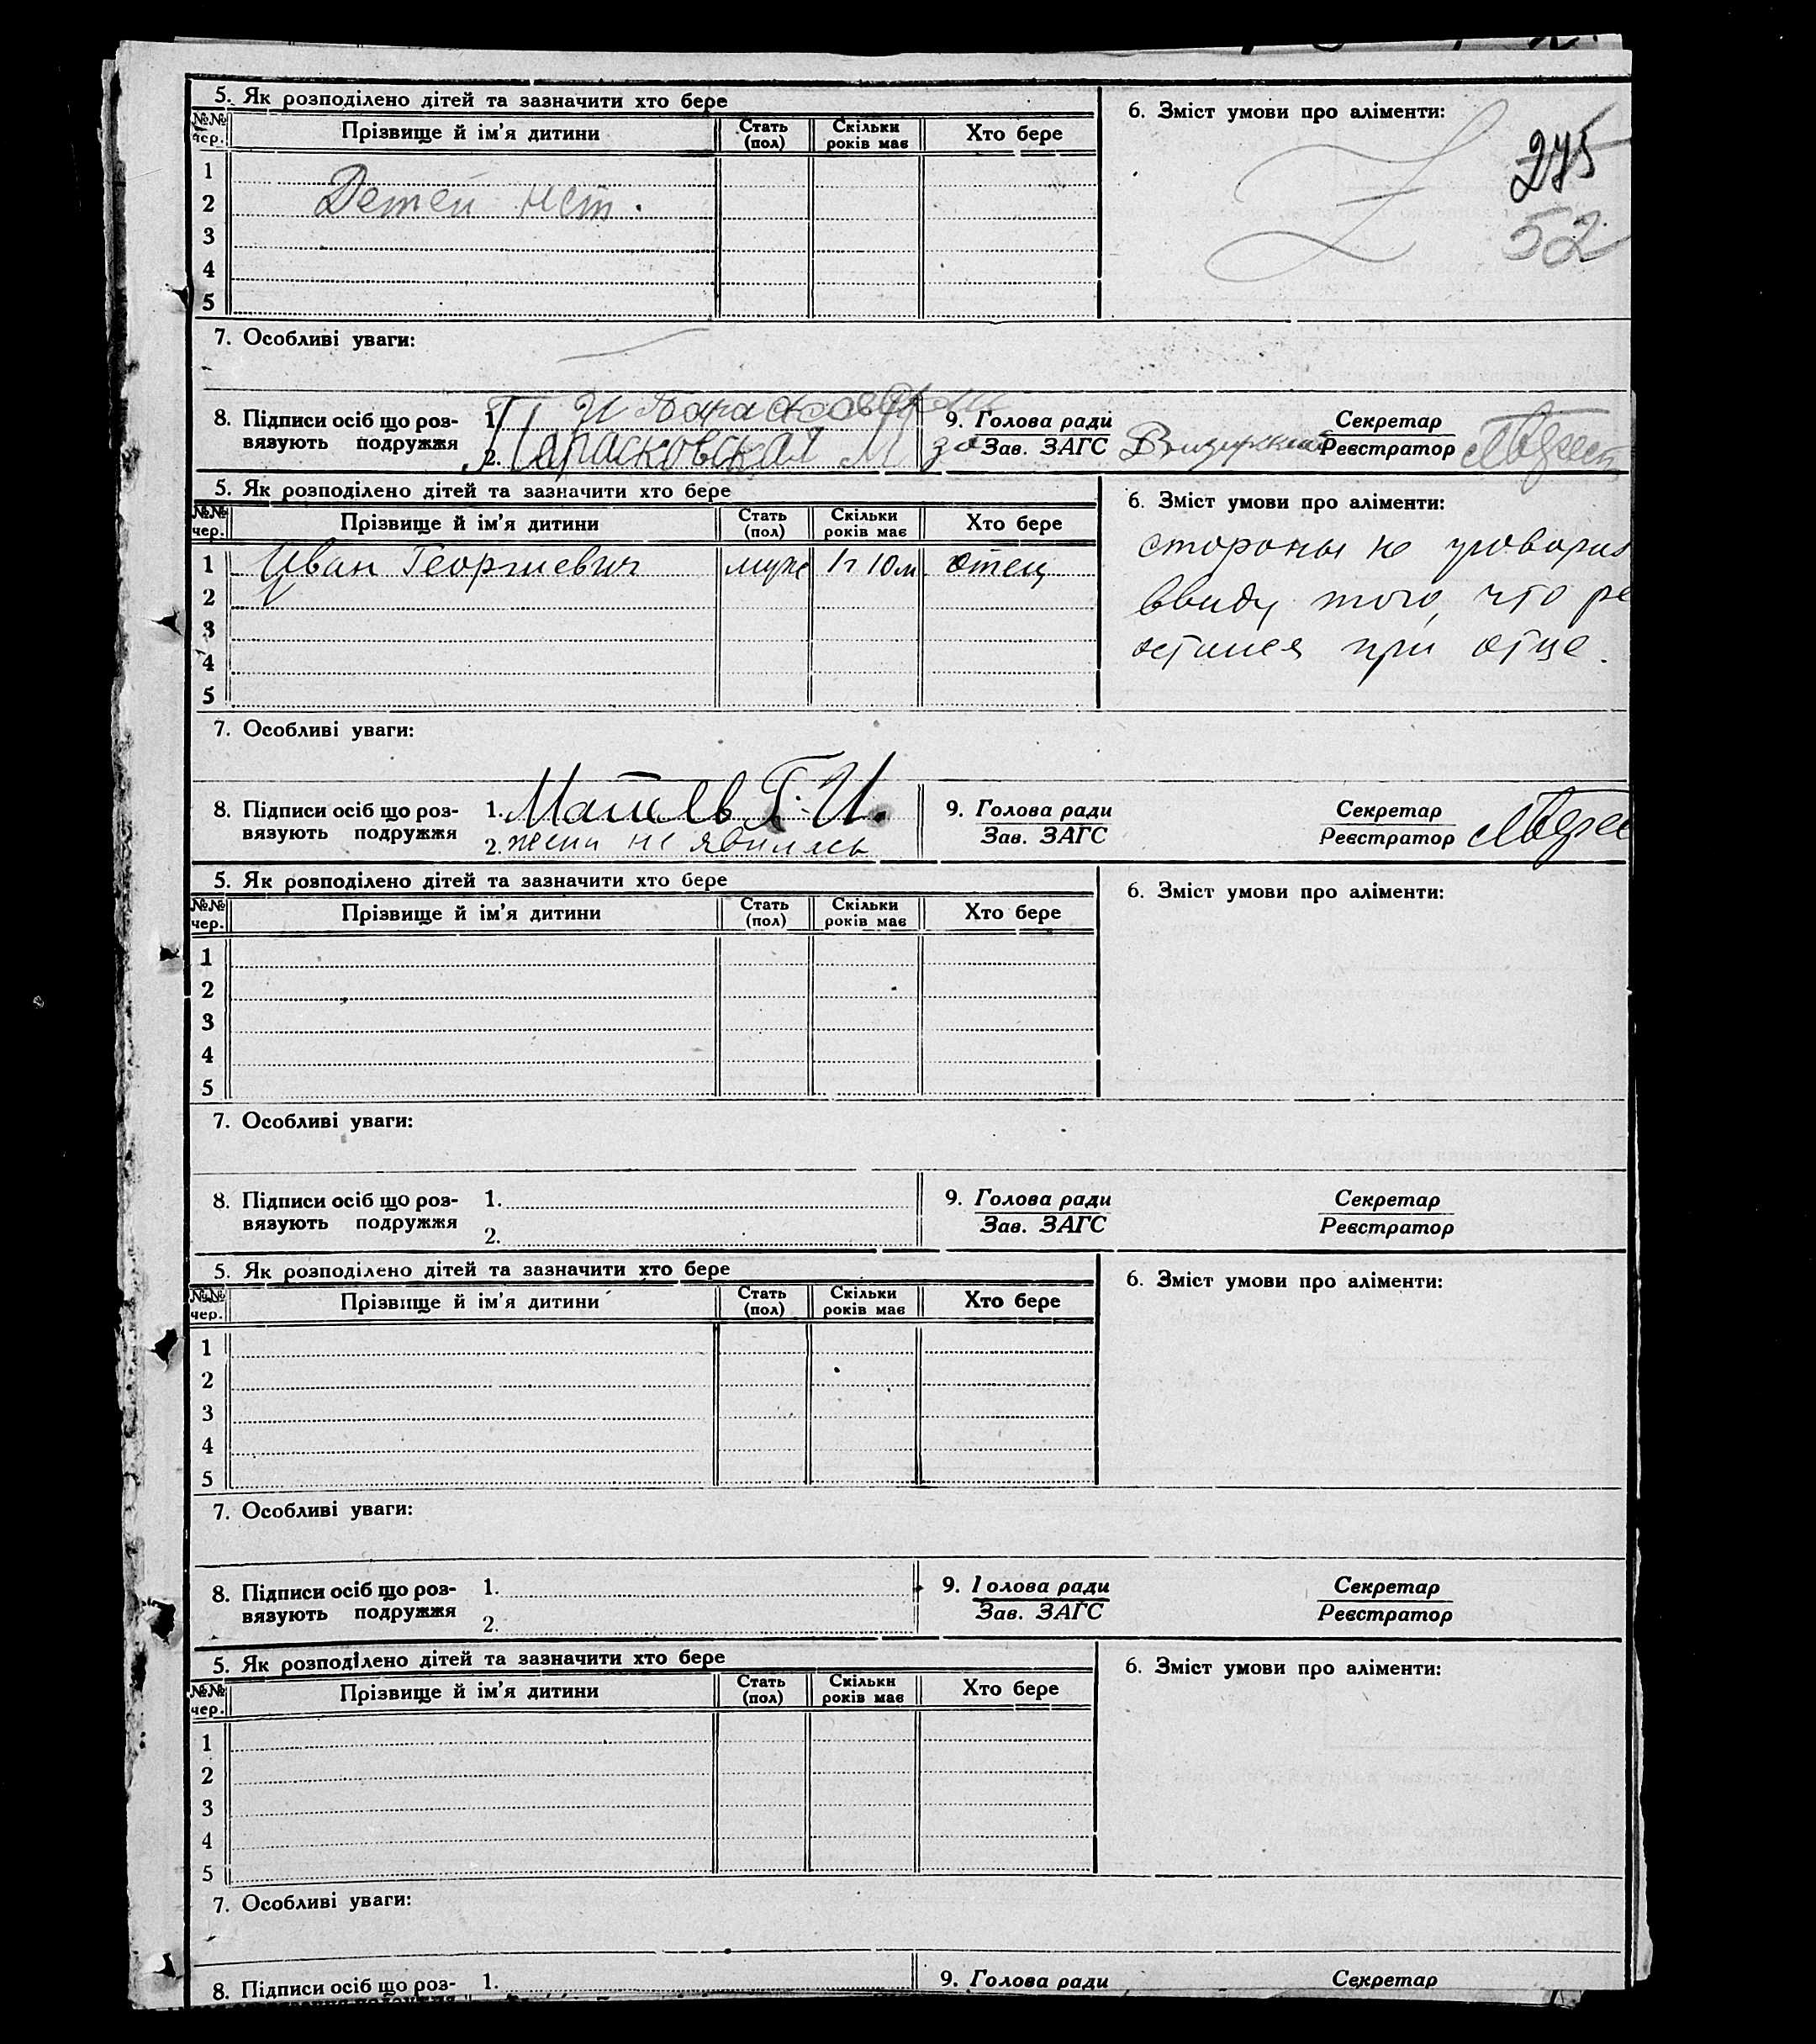 5. Як розподілено дітей та зазначити хто бере
6. Зміст умови про аліменти:
№№ чер. Прізвище й ім'я дитини Стать (пол) Скільки років має Хто бере
275
52
1
2 Детей нет.
3
4
5
7. Особливі уваги:
8. Підписи осіб що роз-
вязують подружжя
1.
2. Парасковская М
9. Голова ради
за Зав. ЗАГС
Секретар
Реєстратор
5. Як розподілено дітей та зазначити хто бере
6. Зміст умови про аліменти:
№№ чер. Прізвище й ім'я дитини Стать (пол) Скільки років має Хто бере
1 Иван Георгиевич муж 1г 10м. отец
2
3
4
5
стороны не уговорил
ввиду того, что ре
остался при отце.
7. Особливі уваги:
8. Підписи осіб що роз-
вязують подружжя
1. Г. И.
2. жена не явилась
9. Голова ради
Зав. ЗАГС
Секретар
Реєстратор
5. Як розподілено дітей та зазначити хто бере
6. Зміст умови про аліменти:
№№ чер. Прізвище й ім'я дитини Стать (пол) Скільки років має Хто бере
1
2
3
4
5
7. Особливі уваги:
8. Підписи осіб що роз-
вязують подружжя
1.
2.
9. Голова ради
Зав. ЗАГС
Секретар
Реєстратор
5. Як розподілено дітей та зазначити хто бере
6. Зміст умови про аліменти:
№№ чер. Прізвище й ім'я дитини Стать (пол) Скільки років має Хто бере
1
2
3
4
5
7. Особливі уваги:
8. Підписи осіб що роз-
вязують подружжя
1.
2.
9. Голова ради
Зав. ЗАГС
Секретар
Реєстратор
5. Як розподілено дітей та зазначити хто бере
6. Зміст умови про аліменти:
№№ чер. Прізвище й ім'я дитини Стать (пол) Скільки років має Хто бере
1
2
3
4
5
7. Особливі уваги:
8. Підписи осіб що роз-
1.
9. Голова ради
Секретар